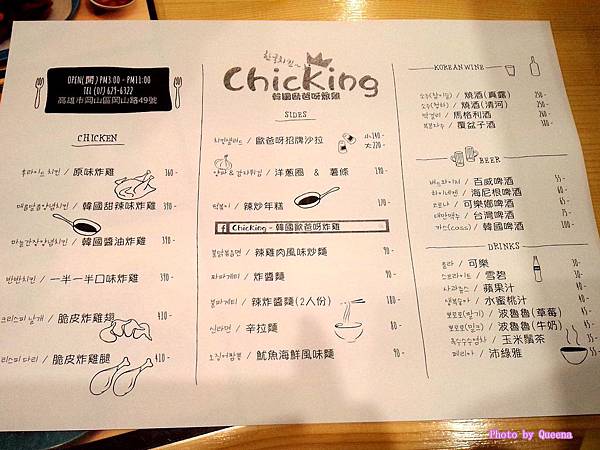 OPEN(間) PM3:00 - PM11:00
TEL (07) 629-6322
高雄市岡山區岡山路49號
CHICKEN
후라이드 치킨 / 原味炸雞 360-
매콤달콤양념치킨 / 韓國甜辣味炸雞 380-
마늘간장양념치킨 / 韓國醬油炸雞
반반치킨 / 一半一半口味炸雞
크리스피 날개 / 脆皮炸雞翅 410-
크리스피 다리 / 脆皮炸雞腿 410-
한국치킨~
Chicking
韓國歐爸呀炸雞
SIDES
치킨샐러드 / 歐爸呀招牌沙拉 小140- 大220-
양파 & 감자튀김 / 洋蔥圈 & 薯條
떡볶이 / 辣炒年糕
f Chicking - 韓國歐爸呀炸雞
불닭볶음면 / 辣雞肉風味炒麵 90-
짜파게티 / 炸醬麵 90-
불짜게티 / 辣炸醬麵(2人份) 180-
신라면 / 辛拉麵 80-
오징어짬뽕 / 魷魚海鮮風味麵 90-
KOREAN WINE
소주(참이슬) / 燒酒(真露)
소주(청하) / 燒酒(清河)
막걸리 / 馬格利酒
복분자주 / 覆盆子酒
BEER
버드와이저 / 百威啤酒
하이네켄 / 海尼根啤酒
코로나 / 可樂娜啤酒
대만맥주 / 台灣啤酒
카스(cass) / 韓國啤酒
DRINKS
콜라 / 可樂
스프라이트 / 雪碧
사과쥬스 / 蘋果汁
/ 水蜜桃汁
뽀로로(딸기) / 波魯魯(草莓)
뽀로로(밀크) / 波魯魯(牛奶)
옥수수수염차 / 玉米鬚茶
페리아 / 沛綠雅
Photo by Queena